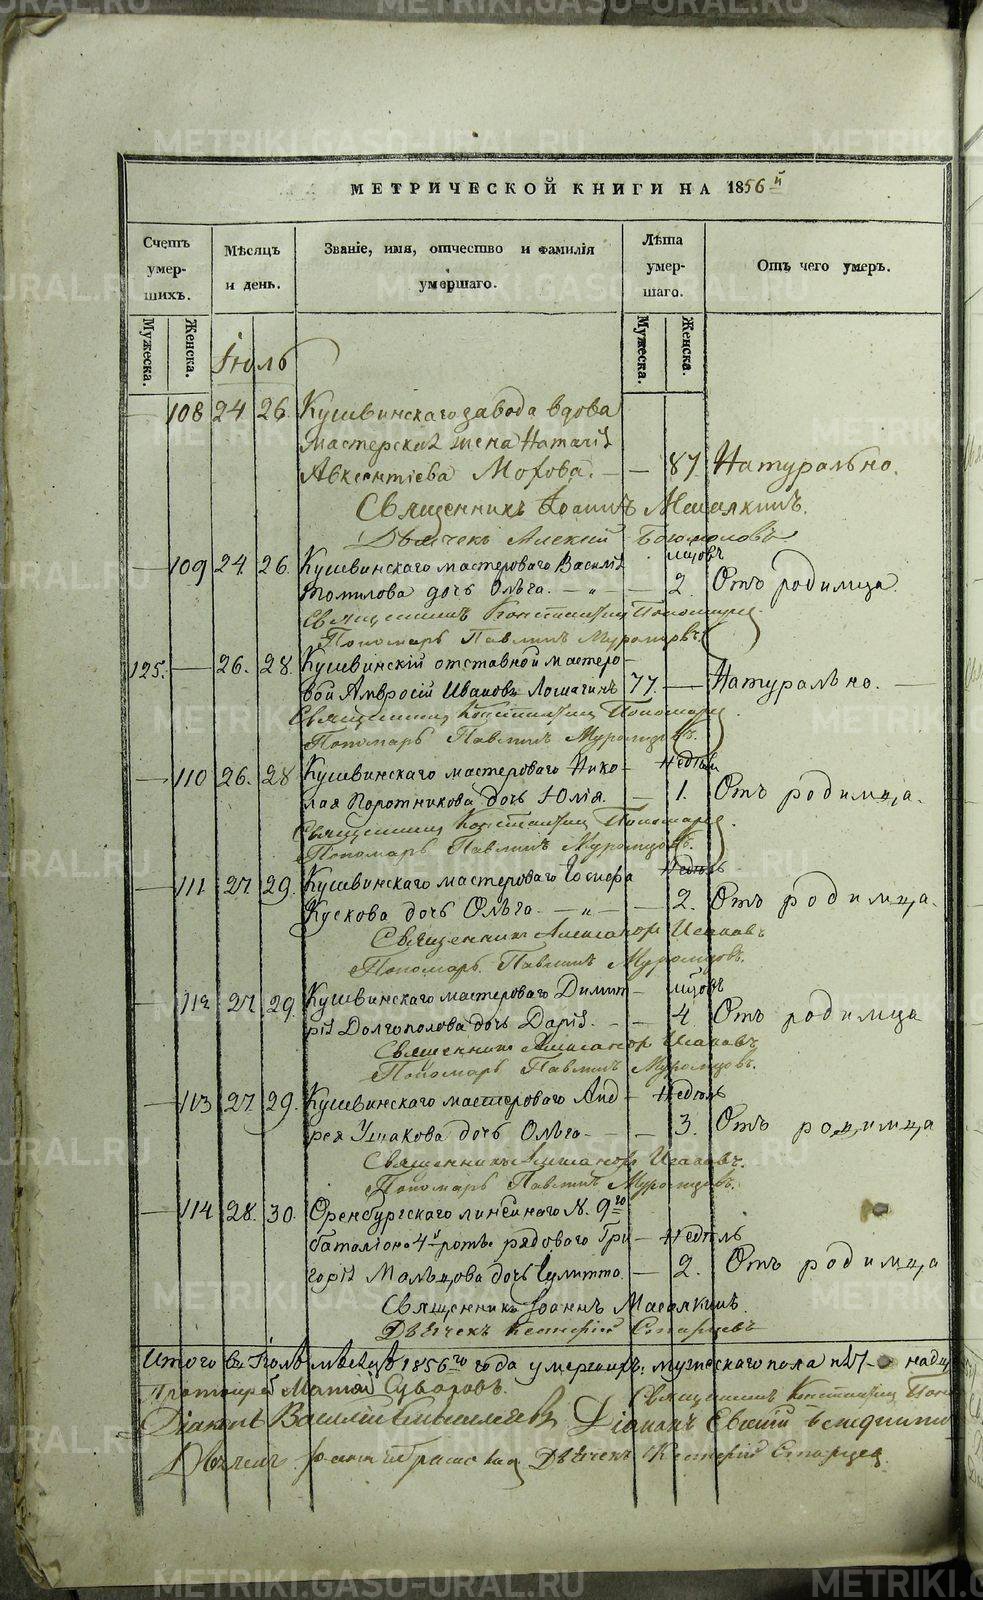 METRIKI.GASO-URAL.RU
МЕТРИЧЕСКОЙ КНИГИ НА 1856й
Счетъ умершихъ.
Мѣсяцъ и день.
Званіе, имя, отчество и фамилія умершаго.
Лѣта умершаго.
Отъ чего умеръ.
Мужеска.
Женска.
Мужеска.
Женска.
Іюль
— 108 24 26 Кушвинскаго завода вдова
мастерская жена Наталія
Авксентіева Мохова. — — 87 Натурально.
Священникъ Іоаннъ
Дьячекъ Алексій
мѣсяцовъ
— 109 24. 26. Кушвинскаго мастероваго Василія
Томилова дочь Ольга. — „ — — 2. Отъ родимца
Священникъ Константинъ Пономаре
Пономарь Павлинъ Муромцовъ
125. — 26. 28. Кушвинскій отставной мастеро-
вой Амвросій Ивановъ Лошагинъ 77. — Натурально. —
Священникъ Константинъ Пономаре
Пономарь Павлинъ Муромцовъ.
— 110 26. 28 Кушвинскаго мастероваго Нико- Недѣли
лая Поротникова дочь Юлія. — 1. Отъ родимца.
Священникъ Константинъ Пономаре
Пономарь Павлинъ Муромцовъ.
— 111 27. 29. Кушвинскаго мастероваго Іосифа Недѣль
Кускова дочь Ольга — „ — — 2. Отъ родимца.
Священникъ Александръ Исаковъ
Пономарь Павлинъ Муромцовъ.
— 112 27. 29. Кушвинскаго мастероваго Димит- мѣсяцовъ
рія Долгополова дочь Дарія. — — 4. Отъ родимца
Священникъ Александръ Исаковъ
Пономарь Павлинъ Муромцовъ.
— 113 27. 29. Кушвинскаго мастероваго Анд- Недѣль
рея Ушакова дочь Ольга — — 3. Отъ родимца
Священникъ Александръ Исаковъ.
Пономарь Павлинъ Муромцовъ.
— 114 28. 30. Оренбургскаго линейнаго N. 9го
баталіона 4й роты рядоваго Гри- Недѣль
горія Мальцова дочь Іулитта. — 2. Отъ родимца
Священникъ Іоаннъ
Дьячекъ Старцевъ
Итого въ Іюлѣ мѣсяцѣ 1856го года умершихъ: мужескаго пола
Протоіерей Суворовъ. Священникъ Константинъ Поно
Діаконъ Василій Діаконъ Евсевій
Дьячекъ Дьячекъ Старцев